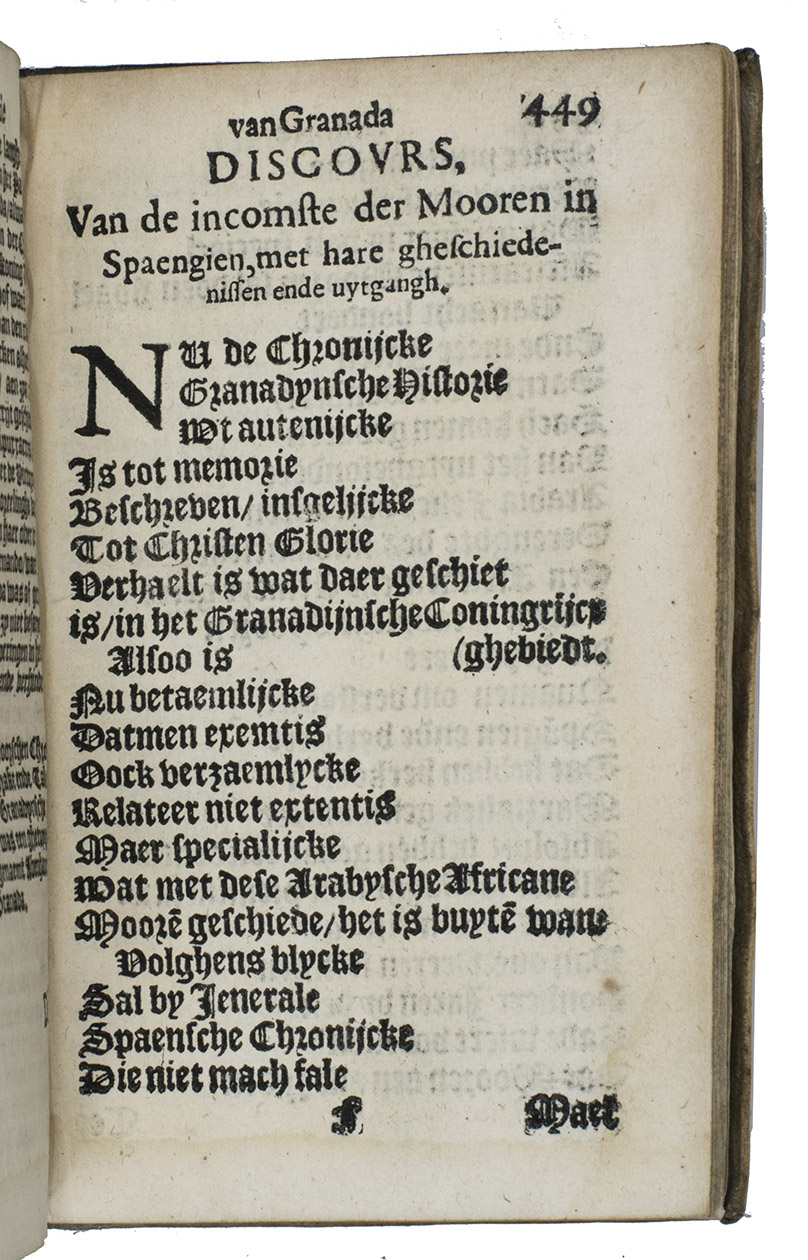 van Granada 449
DISCOVRS,
Van de incomste der Mooren in
Spaengien, met hare gheschiede-
nissen ende uytgangh.
NU de Chronijcke
Granadynsche Historie
Wt autenijcke
Is tot memorie
Beschreven/ insgelijcke
Tot Christen Glorie
Verhaelt is wat daer geschiet
is/in het Granadijnsche Coningrijcx
Alsoo is (ghebiedt.
Nu betaemlijcke
Datmen exemtis
Oock verzaemlycke
Relateer niet extentis
Maer specialijcke
Wat met dese Arabysche Africane
Moorē geschiede/het is buytē wane
Volghens blycke
Sal by Jenerale
Spaensche Chronijcke
Die niet mach fale
Maer